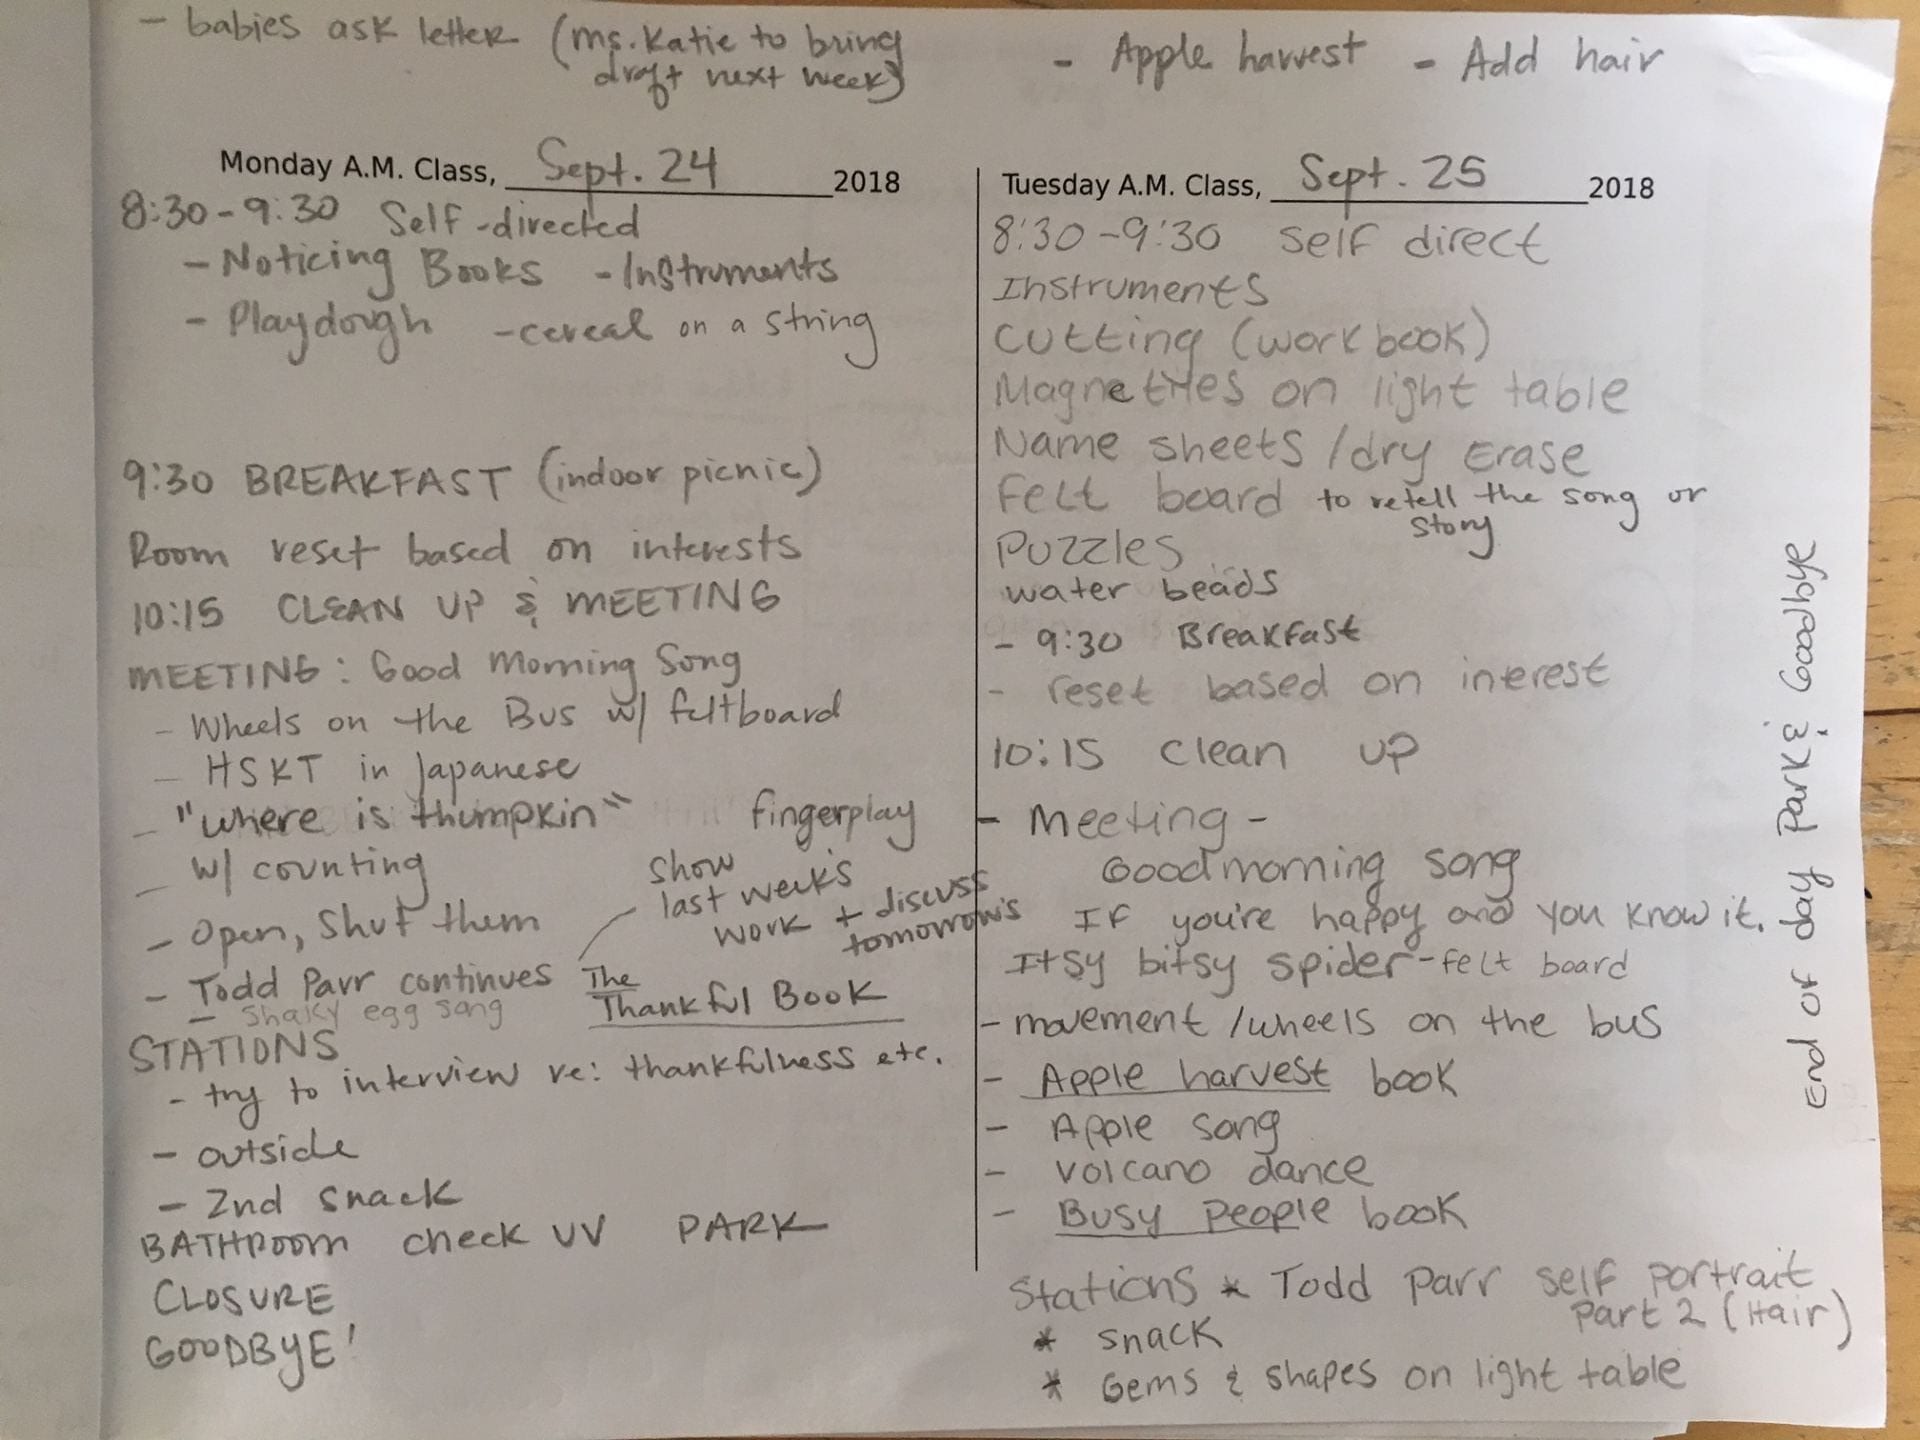 - babies ask letter (ms. Katie to bring
draft next week)
- Apple harvest - Add hair
Monday A.M. Class, Sept. 24 2018
8:30-9:30 Self-directed
- Noticing Books - Instruments
- Playdough - cereal on a string
9:30 BREAKFAST (indoor picnic)
Room reset based on interests
10:15 CLEAN UP & MEETING
MEETING: Good Morning Song
- Wheels on the Bus w/ feltboard
- HSKT in Japanese
- "where is thumpkin" fingerplay
- w/ counting
- Open, Shut them
show
last week's
work + discuss
tomorrow's
- Todd Parr continues The
Thankful Book
- Shaky egg song
STATIONS
- try to interview re: thankfulness etc.
- outside
- 2nd snack
BATHROOM check UV PARK
CLOSURE
GOODBYE!
Tuesday A.M. Class, Sept. 25 2018
8:30-9:30 self direct
Instruments
Cutting (workbook)
Magnetiles on light table
Name sheets /dry Erase
Felt board to retell the song or
story
Puzzles
water beads
- 9:30 Breakfast
- reset based on interest
10:15 clean up
- Meeting -
Goodmorning song
If you're happy and you know it.
Itsy bitsy spider-felt board
- movement /wheels on the bus
- Apple harvest book
- Apple song
- Volcano dance
- Busy People book
Stations * Todd Parr self portrait
Part 2 (Hair)
* snack
* Gems & shapes on light table
End of day Park & Goodbye